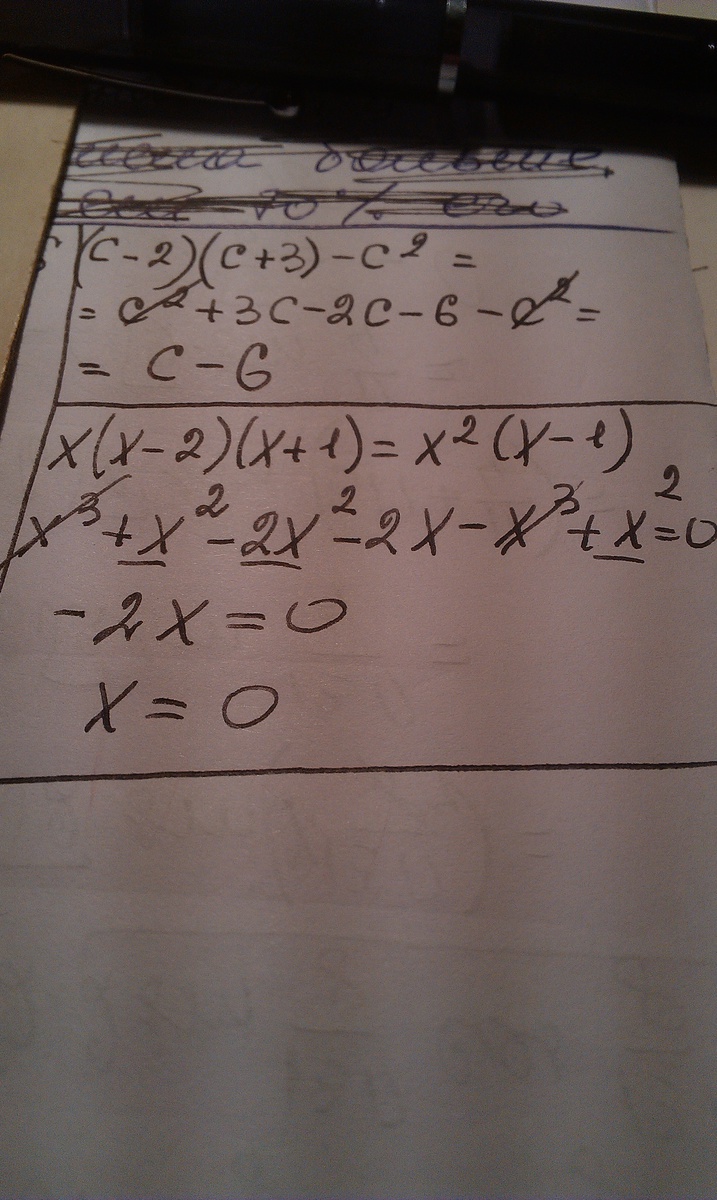 больше,
90 %
(c-2)(c+3)-c² =
= c²+3c-2c-6-c²=
= c-6
x(x-2)(x+1)=x²(x-1)
x³+x²-2x²-2x-x³+x²=0
-2x=0
x=0